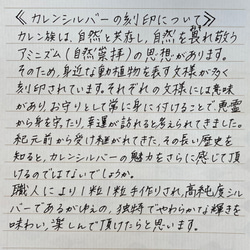 《カレンシルバーの刻印について》
カレン族は、自然と共存し、自然を畏れ敬う
アニミズム(自然崇拝)の思想があります。
そのため、身近な動植物を表す文様が多く
刻印されています。それぞれの文様には意味
があり、お守りとして常に身に付けることで、悪霊
から身を守たり、幸運が訪れると考えられてきました。
紀元前から受け継がれてきた、その長い歴史を
知ると、カレンシルバーの魅力をさらに感じて頂
けるのではないでしょうか。
職人により1粒1粒手作りされ、高純度シル
バーであるがゆえの、独特でやわらかな輝きを
味わい、楽しんで頂けたらと思います。